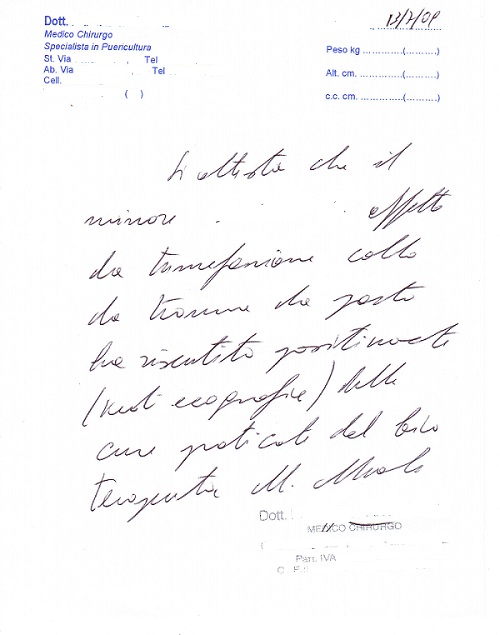 Dott.
Medico Chirurgo
Specialista in Puericultura
St. Via Tel
Ab. Via Tel
Cell.
( )
13/7/09
Peso kg ..............(..........)
Alt. cm. ..............(..........)
c.c. cm. ..............(..........)
Si attesta che il
minore affetto
da tumefazione collo
da trauma da parto
ha risentito positivamente
(vedi ecografie) delle
cure praticate dal
terapeuta M.
Dott.
MEDICO CHIRURGO
(
Part. IVA
C. F.: